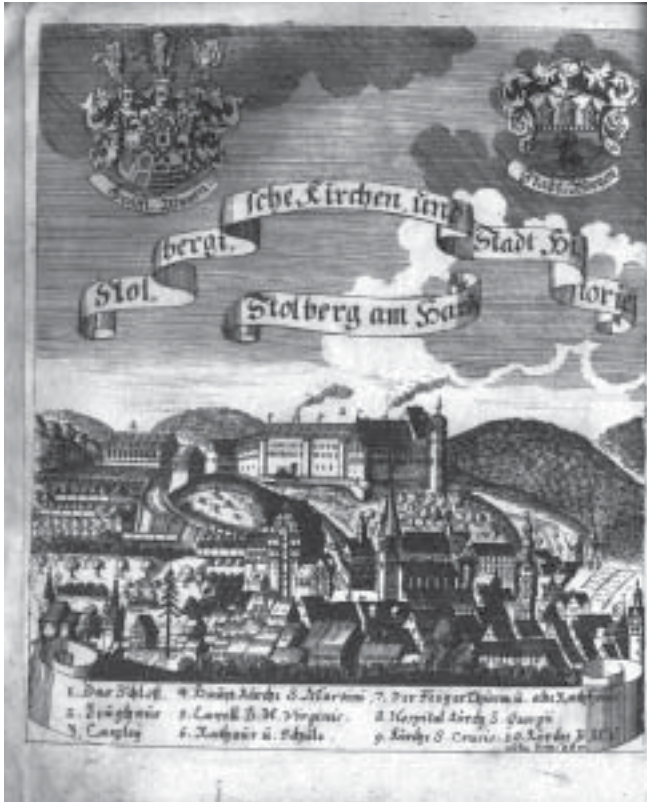 Gräfl. Wapen.
Stadt. Wapen
Stol. bergi. sche, Kirchen, und Stadt. Hi. storie
Stolberg am Hartz
1. Das Schloß.
2. Zeughaus
3. Cantzley
4. Haupt Kirche S. Martini
5. Capell B. M. Virginis.
6. Rathaus u. Schule.
7. Der Seiger Thurm u. alte Rathhaus
8. Hospital Kirch S. Georgii
9. Kirche S. Crucis. 10.